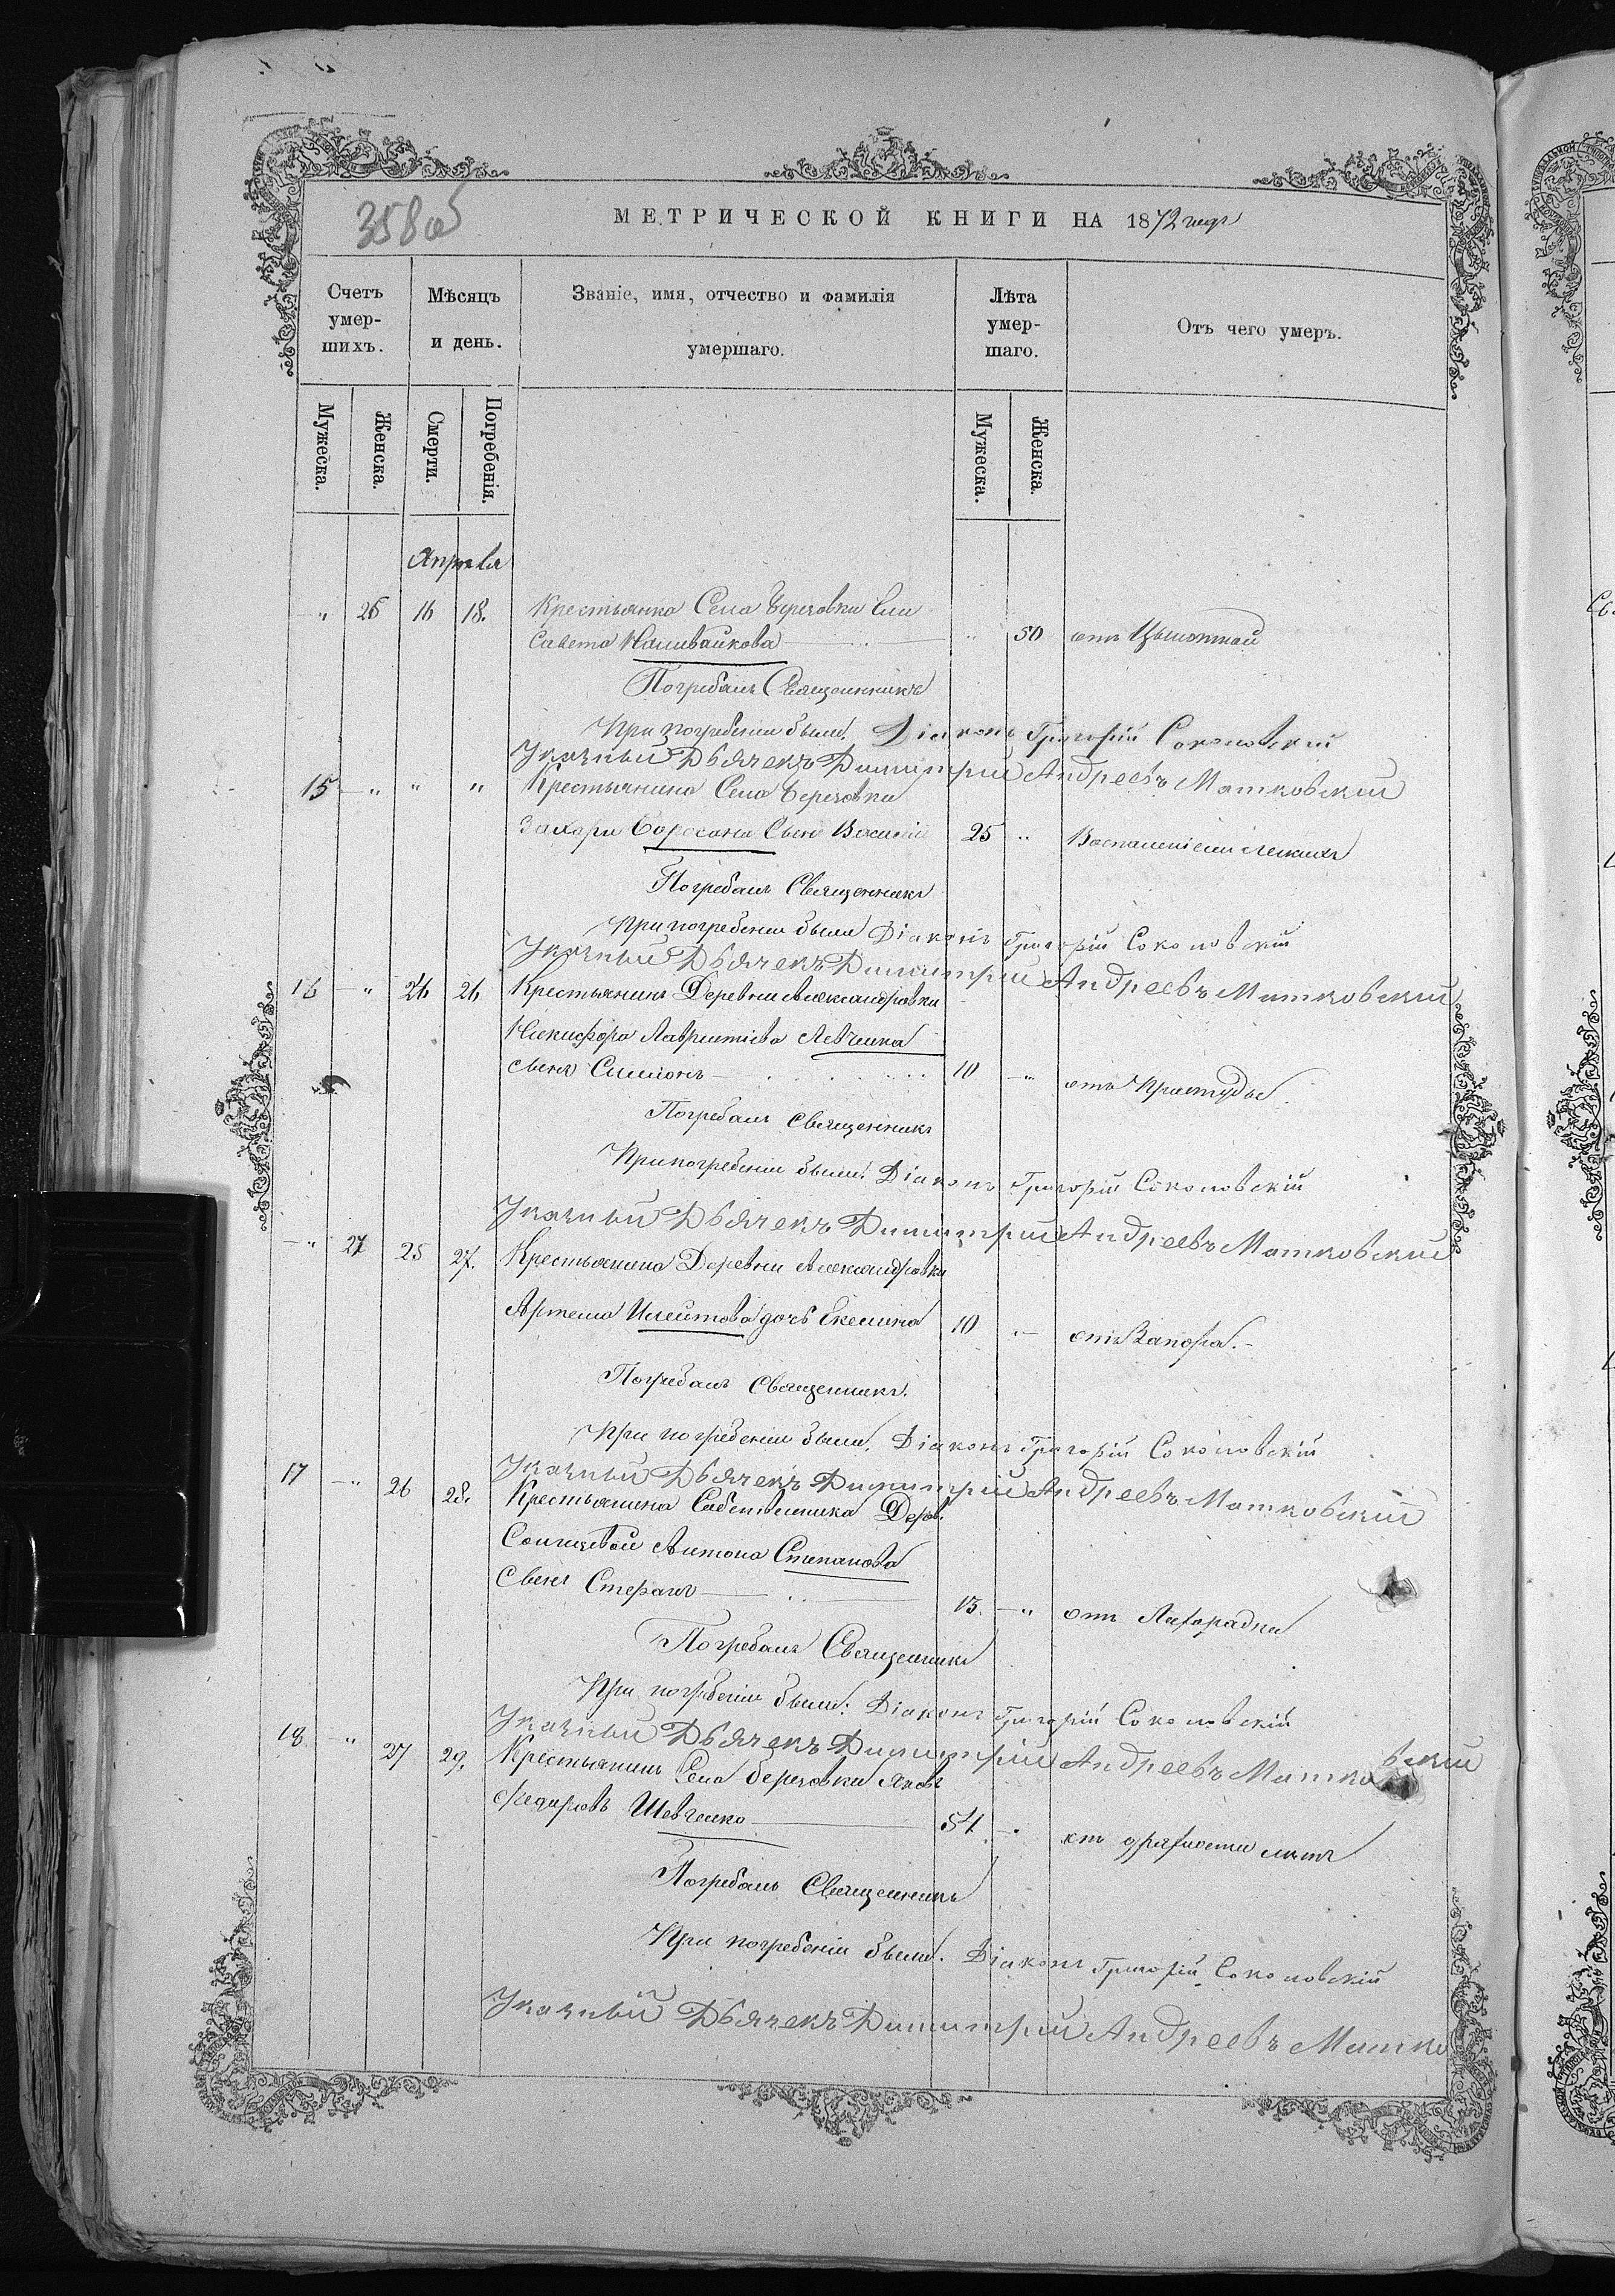 358 об
МЕТРИЧЕСКОЙ КНИГИ НА 1872 годъ
Счетъ умер-шихъ.
Мѣсяцъ и день.
Званіе, имя, отчество и фамилія умершаго.
Лѣта умер-шаго.
Отъ чего умеръ.
Мужеска.
Женска.
Смерти.
Погребенія.
Мужеска.
Женска.
Апрѣля
" 26 16 18. Крестьянка Села Березовки Ели
савета Наливайкова " 50 отъ
Погребалъ Священникъ
При погребеніи были: Діаконъ Григорій Соколовскій
Указный Дьячекъ Димитрій Андреевъ Матковскій
15 " " " Крестьянина Села Березовки
Захарія Сынъ Василій 25 " Воспаленіемъ легкихъ
Погребалъ Священникъ
При погребеніи были Діаконъ Григорій Соколовскій
Указный Дьячекъ Димитрій Андреевъ Матковскій
16 " 24 26 Крестьянинъ Деревни Александровки
Никифора Лаврентіева Левченка
сынъ Симіонъ 10 " отъ Простуды.
Погребалъ Священникъ
При погребеніи были: Діаконъ Григорій Соколовскій
Указный Дьячекъ Димитрій Андреевъ Матковскій
" 27 25 27. Крестьянина Деревни Александровки
Артема дочь 10 " отъ Запора.
Погребалъ Священникъ.
При погребеніи были. Діаконъ Григорій Соколовскій
Указный Дьячекъ Димитрій Андреевъ Матковскій
17 " 26 28. Крестьянина Собственника Дерев.
Солнцевой Антона Степанова
Сынъ Стефанъ 13. " отъ Лихорадки
Погребалъ Священникъ
При погребеніи были: Діаконъ Григорій Соколовскій
Указный Дьячекъ Димитрій Андреевъ Матковскій
18 " 27 29. Крестьянинъ Села Березовки Яковъ
Федоровъ Шевченко 54 " отъ дряхлости лѣтъ
Погребалъ Священникъ
При погребеніи были. Діаконъ Григорій Соколовскій
Указный Дьячекъ Димитрій Андреевъ Матко